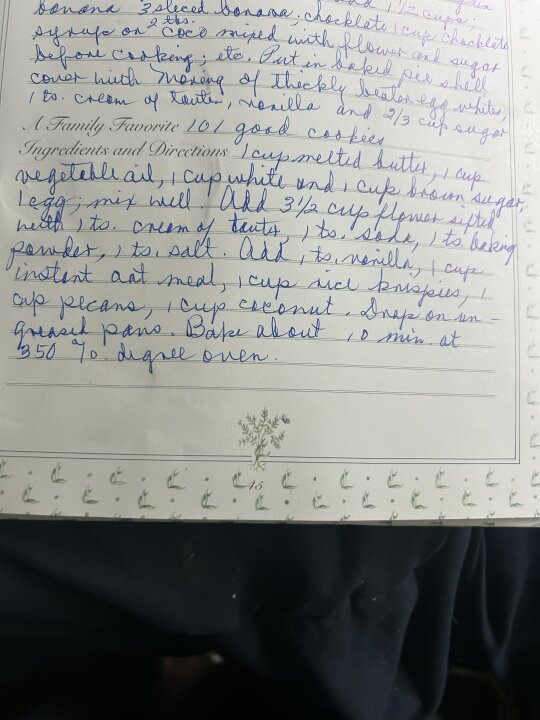 banana 3 sliced banana, chocklate 1 cup chocklate
syrup or 2 tbs. coco mixed with flower and sugar
before cooking; etc. Put in baked pie shell
cover with Moreng of thickly beaten egg whites,
1 ts. cream of tauter, vanilla and 2/3 cup sugar
A Family Favorite 101 good cookies
Ingredients and Directions 1 cup melted butter, 1 cup
vegetable oil, 1 cup white and 1 cup brown sugar,
1 egg; mix well. Add 3 1/2 cup flower sifted
with 1 ts. cream of tauter, 1 ts. soda, 1 ts. baking
powder, 1 ts. salt. Add 1 ts. vanilla, 1 cup
instant oat meal, 1 cup rice krispies, 1
cup pecans, 1 cup coconut. Drop on un-
greased pans. Bake about 10 min. at
350 % degree oven.
45